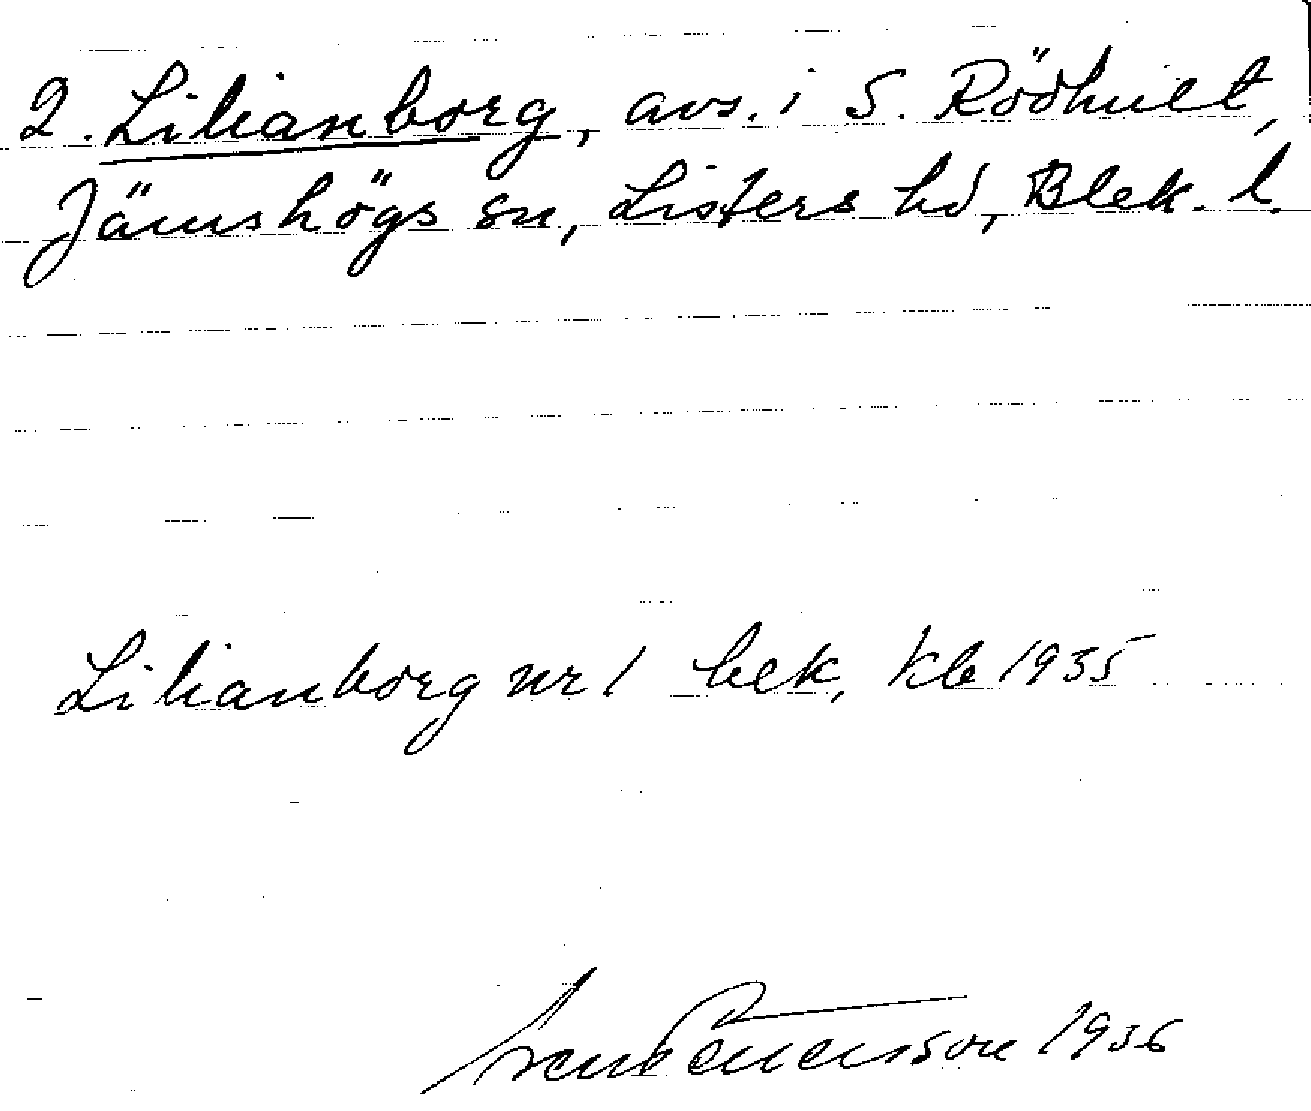 2. Lilianborg, avs. i S. Rödhult,
Jämshögs sn, Listers hd, Blek. l.
Lilianborg nr 1 bek, Kb 1935
1936